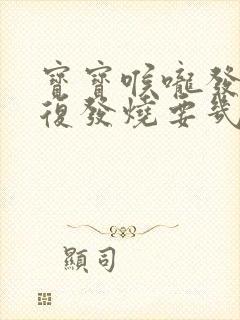 寶寶喉嚨發
復發燒要幾
顯司